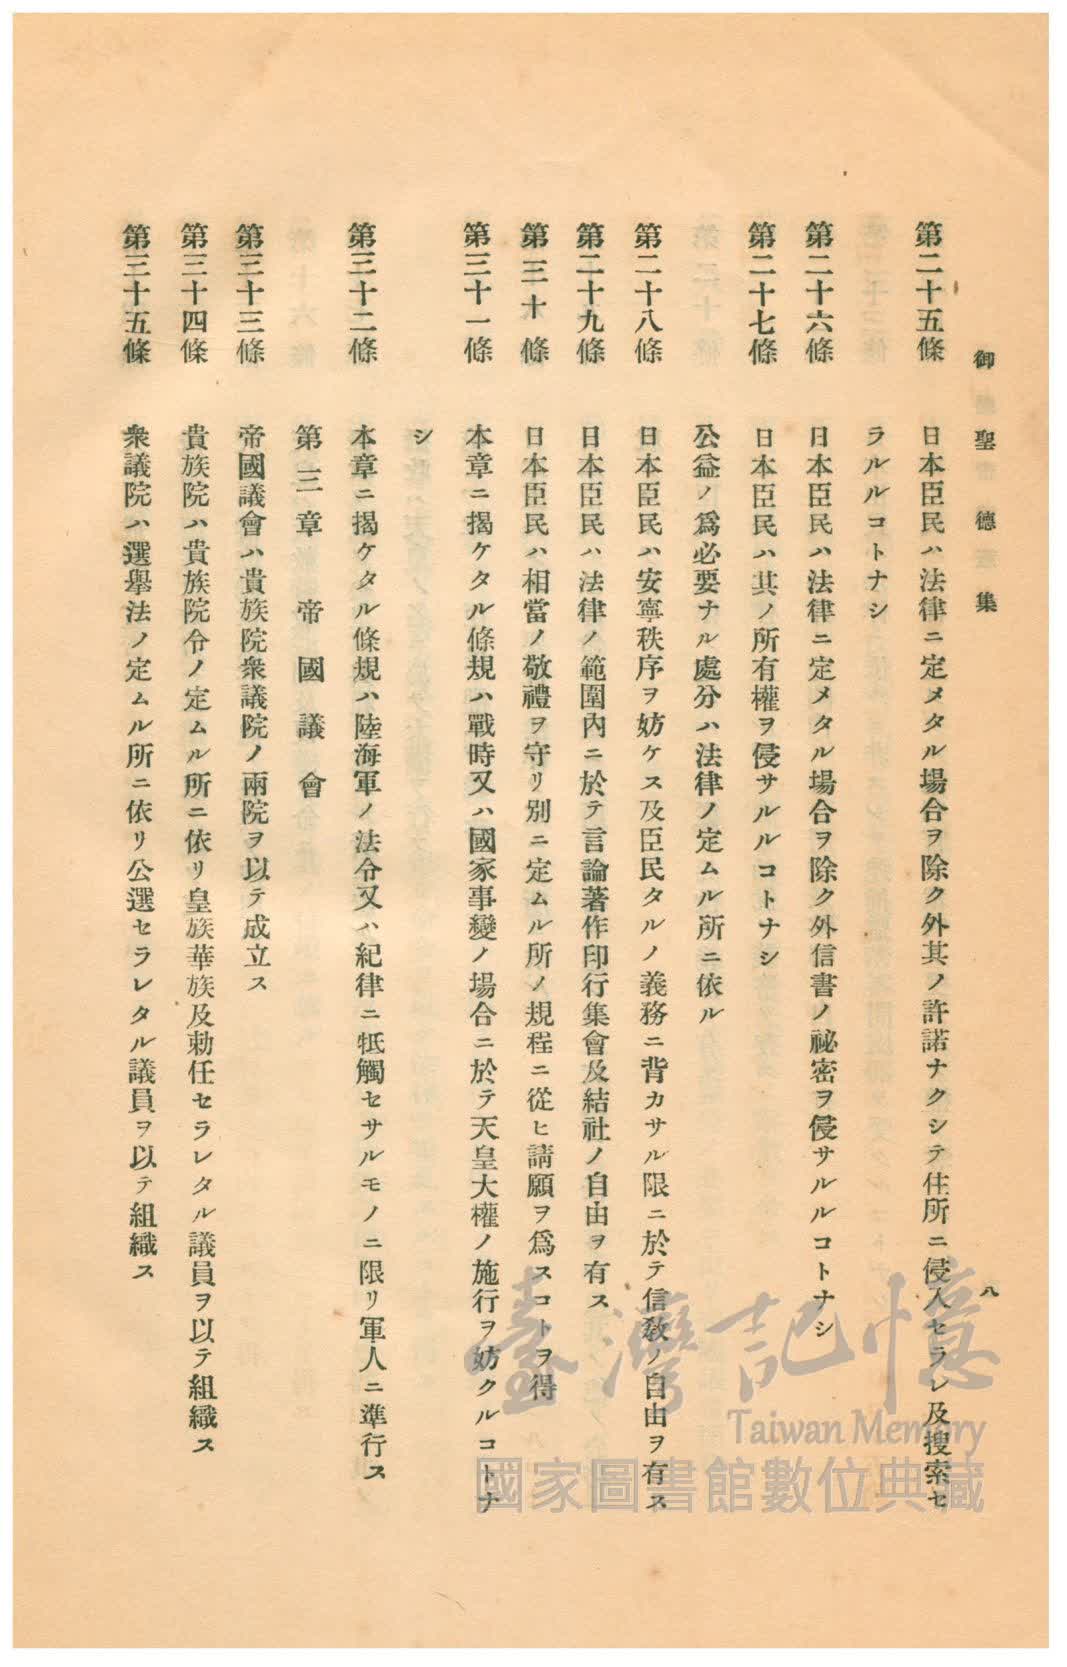 御聖德集
八
第二十五條　日本臣民ハ法律ニ定メタル場合ヲ除ク外其ノ許諾ナクシテ住所ニ侵入セラレ及搜索セ
ラルルコトナシ
第二十六條　日本臣民ハ法律ニ定メタル場合ヲ除ク外信書ノ祕密ヲ侵サルルコトナシ
第二十七條　日本臣民ハ其ノ所有權ヲ侵サルルコトナシ
公益ノ爲必要ナル處分ハ法律ノ定ムル所ニ依ル
第二十八條　日本臣民ハ安寧秩序ヲ妨ケス及臣民タルノ義務ニ背カサル限ニ於テ信敎ノ自由ヲ有ス
第二十九條　日本臣民ハ法律ノ範圍內ニ於テ言論著作印行集會及結社ノ自由ヲ有ス
第三十條　日本臣民ハ相當ノ敬禮ヲ守リ別ニ定ムル所ノ規程ニ從ヒ請願ヲ爲スコトヲ得
第三十一條　本章ニ揭ケタル條規ハ戰時又ハ國家事變ノ場合ニ於テ天皇大權ノ施行ヲ妨クルコトナ
シ
第三十二條　本章ニ揭ケタル條規ハ陸海軍ノ法令又ハ紀律ニ牴觸セサルモノニ限リ軍人ニ準行ス
第三章　帝國議會
第三十三條　帝國議會ハ貴族院衆議院ノ兩院ヲ以テ成立ス
第三十四條　貴族院ハ貴族院令ノ定ムル所ニ依リ皇族華族及勅任セラレタル議員ヲ以テ組織ス
第三十五條　衆議院ハ選擧法ノ定ムル所ニ依リ公選セラレタル議員ヲ以テ組織ス
臺灣記憶
Taiwan Memory
國家圖書館數位典藏